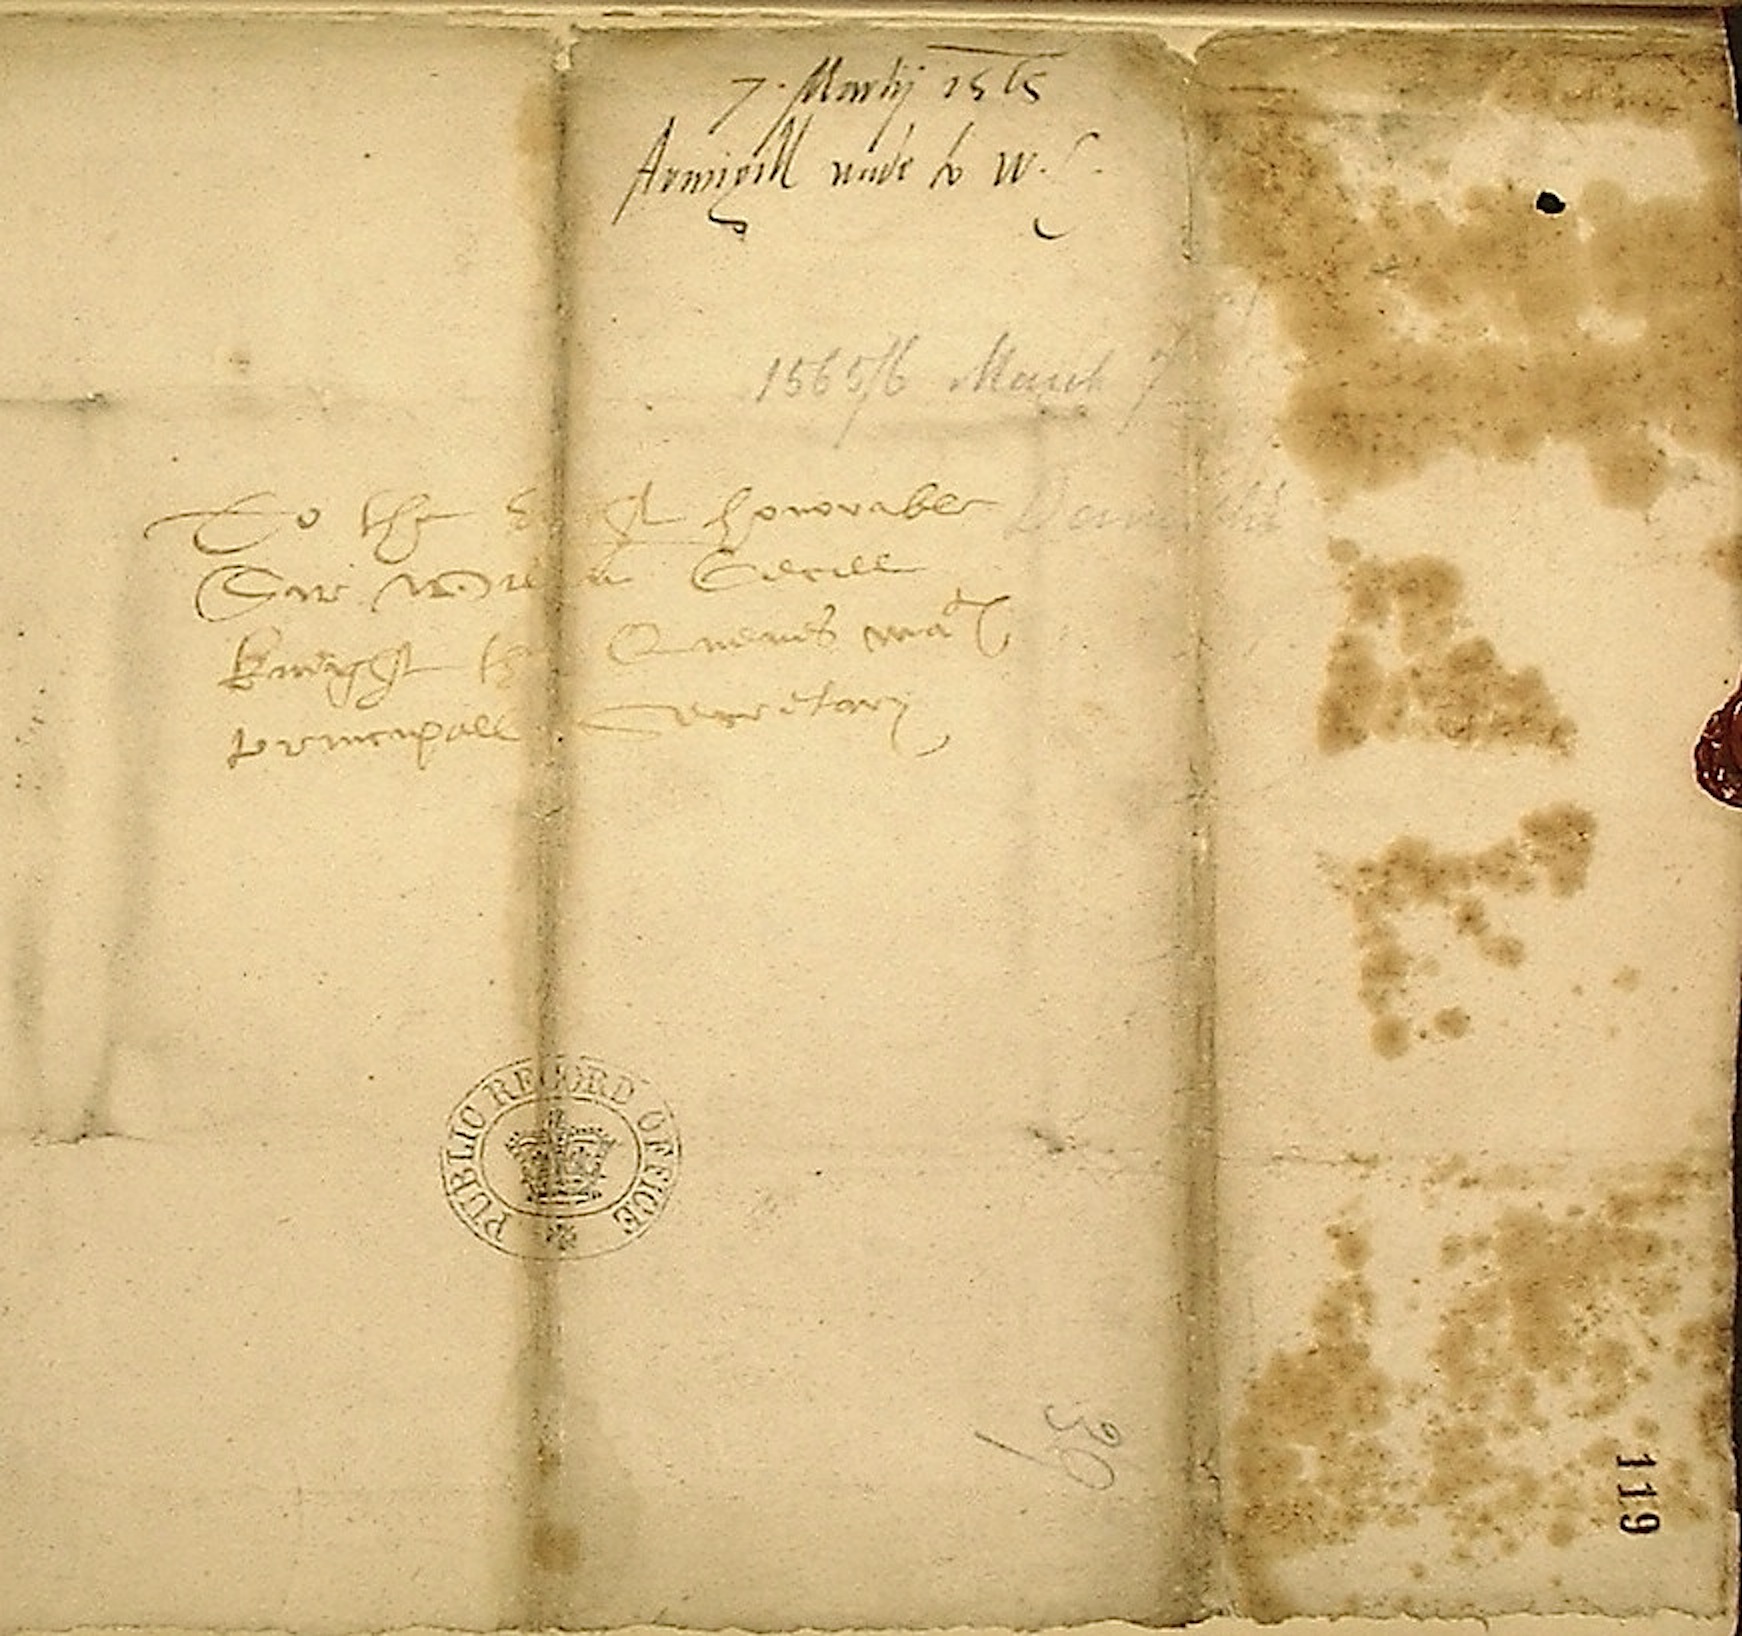 7. Martij 1565
Armigill wade to W.C.
1565/6 March 7
To the right honorable
Sir William Cecill
knyght the Quenes ma
principall Secretary
PUBLIC RECORD OFFICE
39
119